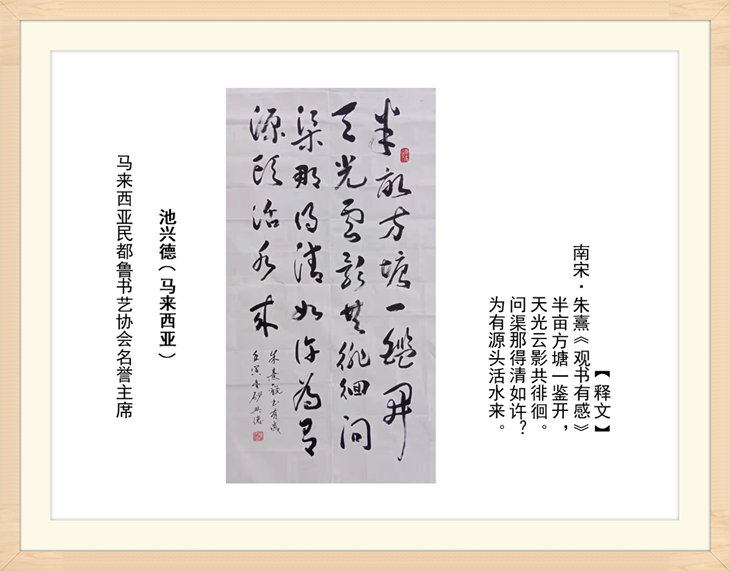 【释文】
南宋·朱熹《观书有感》
半亩方塘一鉴开，
天光云影共徘徊。
问渠那得清如许？
为有源头活水来。
半畝方塘一鑑開
天光雲影共徘徊問
渠那得清如許為有
源頭活水來
朱熹觀書有感
壬寅
池兴德（马来西亚）
马来西亚民都鲁书艺协会名誉主席